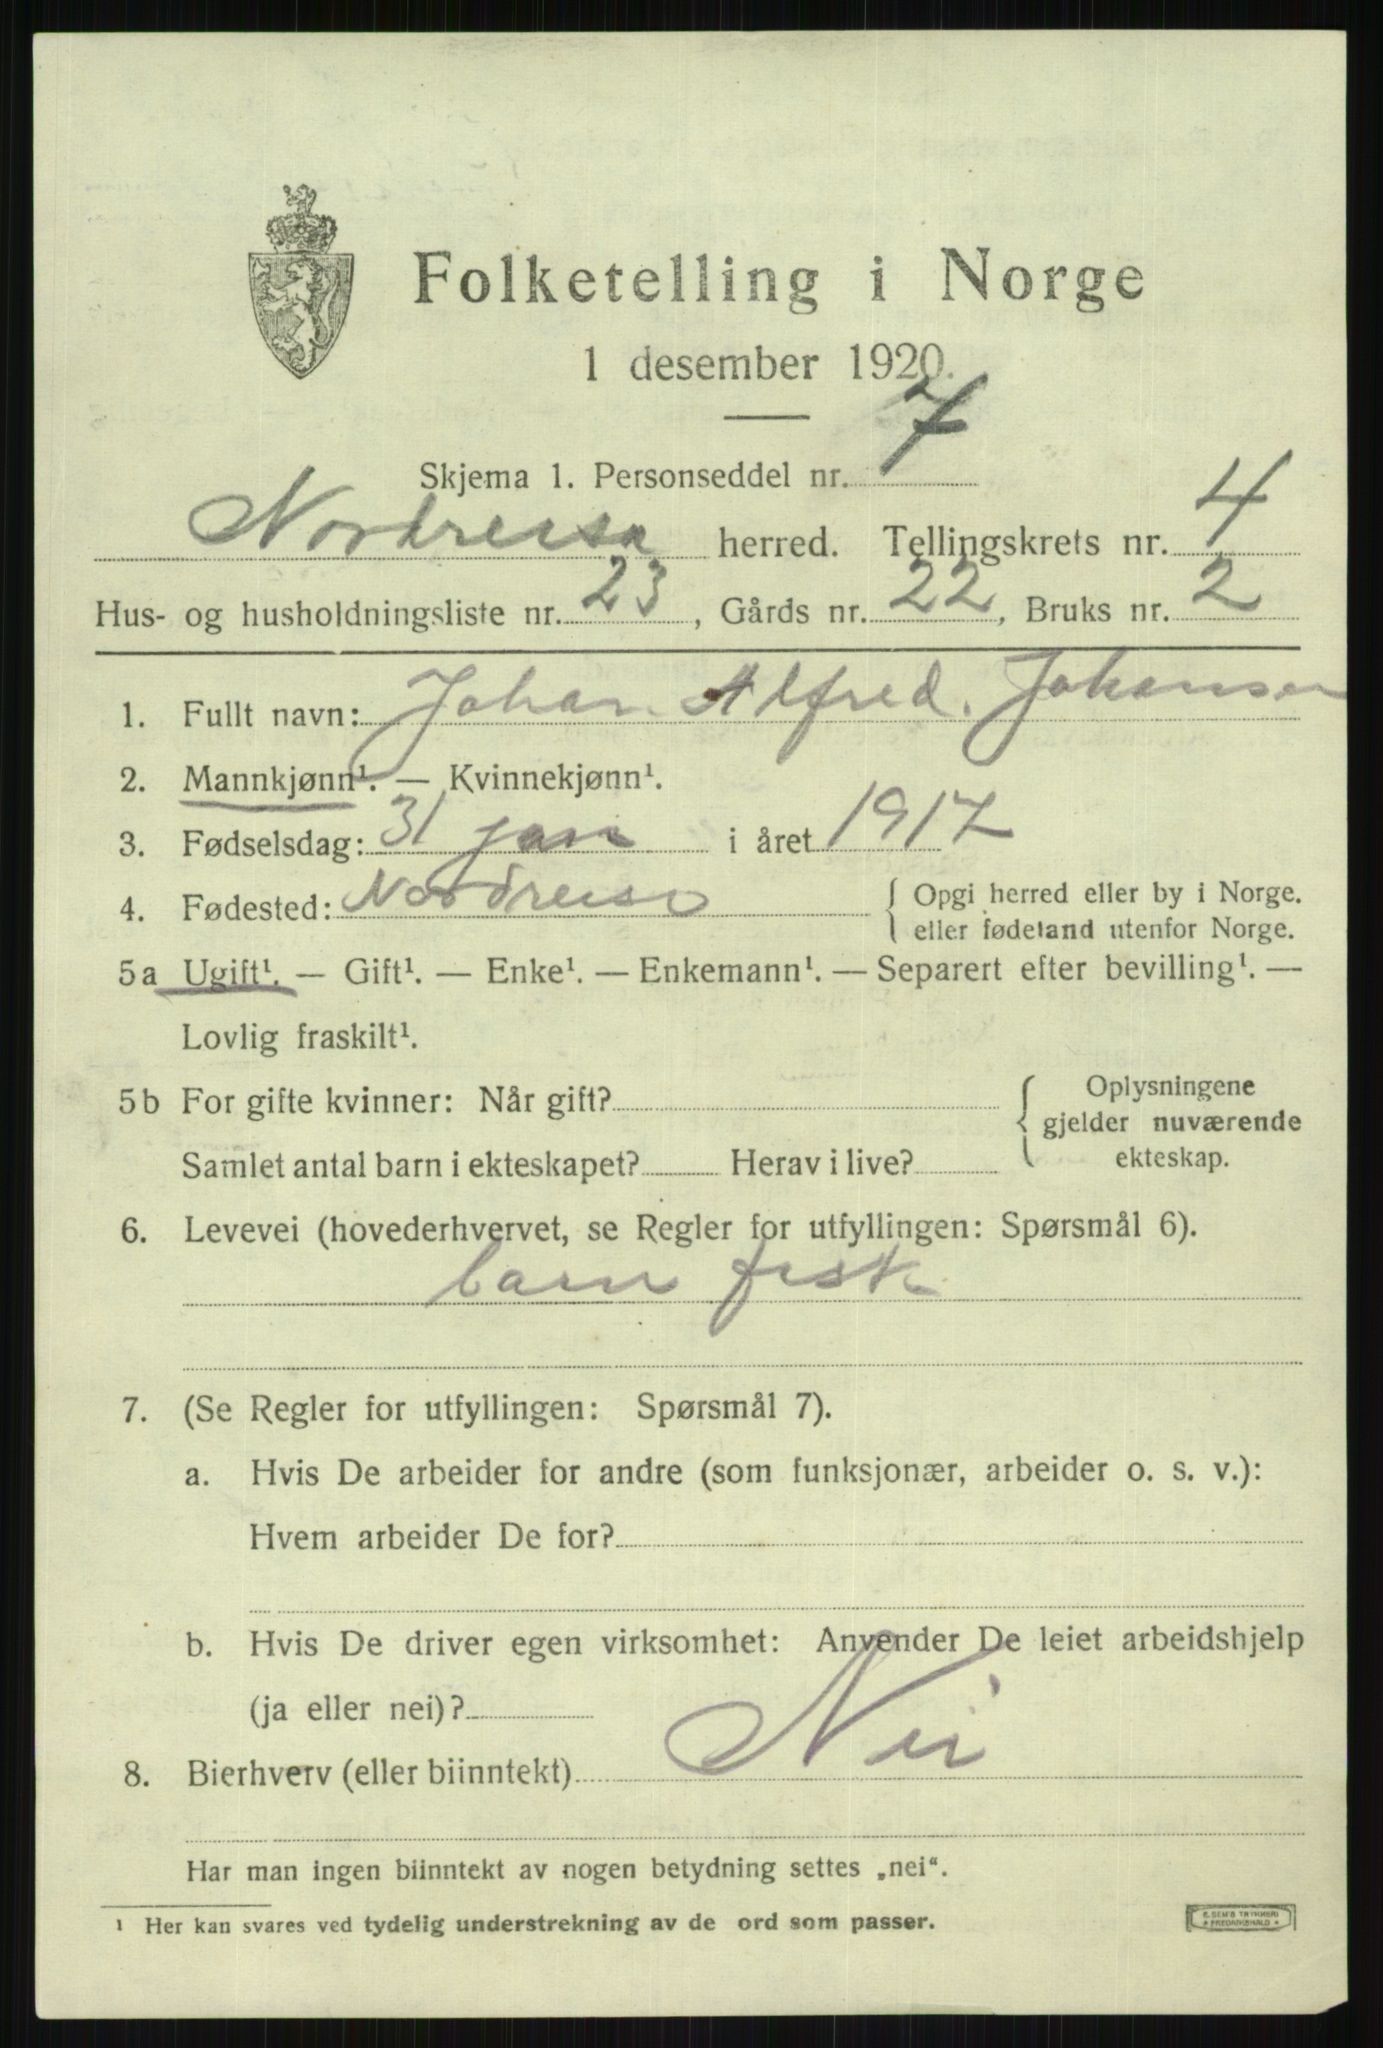 Folketelling i Norge
1 desember 1920.
Skjema 1. Personseddel nr. 7
Nordreisa herred. Tellingskrets nr. 4
Hus- og husholdningsliste nr. 23, Gårds nr. 22, Bruks nr. 2
1. Fullt navn: Johan Alfred. Johansen
2. Mannkjønn¹. — Kvinnekjønn¹.
3. Fødselsdag: 31 jan i året 1917
4. Fødested: Nordreisa { Opgi herred eller by i Norge.
eller fødeland utenfor Norge.
5a Ugift¹. — Gift¹. — Enke¹. — Enkemann¹. — Separert efter bevilling¹. —
Lovlig fraskilt¹.
5b For gifte kvinner: Når gift? { Oplysningene
gjelder nuværende
Samlet antal barn i ekteskapet? Herav i live? ekteskap.
6. Levevei (hovederhvervet, se Regler for utfyllingen: Spørsmål 6).
barn fisk
7. (Se Regler for utfyllingen: Spørsmål 7).
a. Hvis De arbeider for andre (som funksjonær, arbeider o. s. v.):
Hvem arbeider De for?
b. Hvis De driver egen virksomhet: Anvender De leiet arbeidshjelp
(ja eller nei)?
8. Bierhverv (eller biinntekt) Nei
Har man ingen biinntekt av nogen betydning settes „nei“.
¹ Her kan svares ved tydelig understrekning av de ord som passer.
E. SEM'S TRYKKERI
* FREDRIKSHALD *